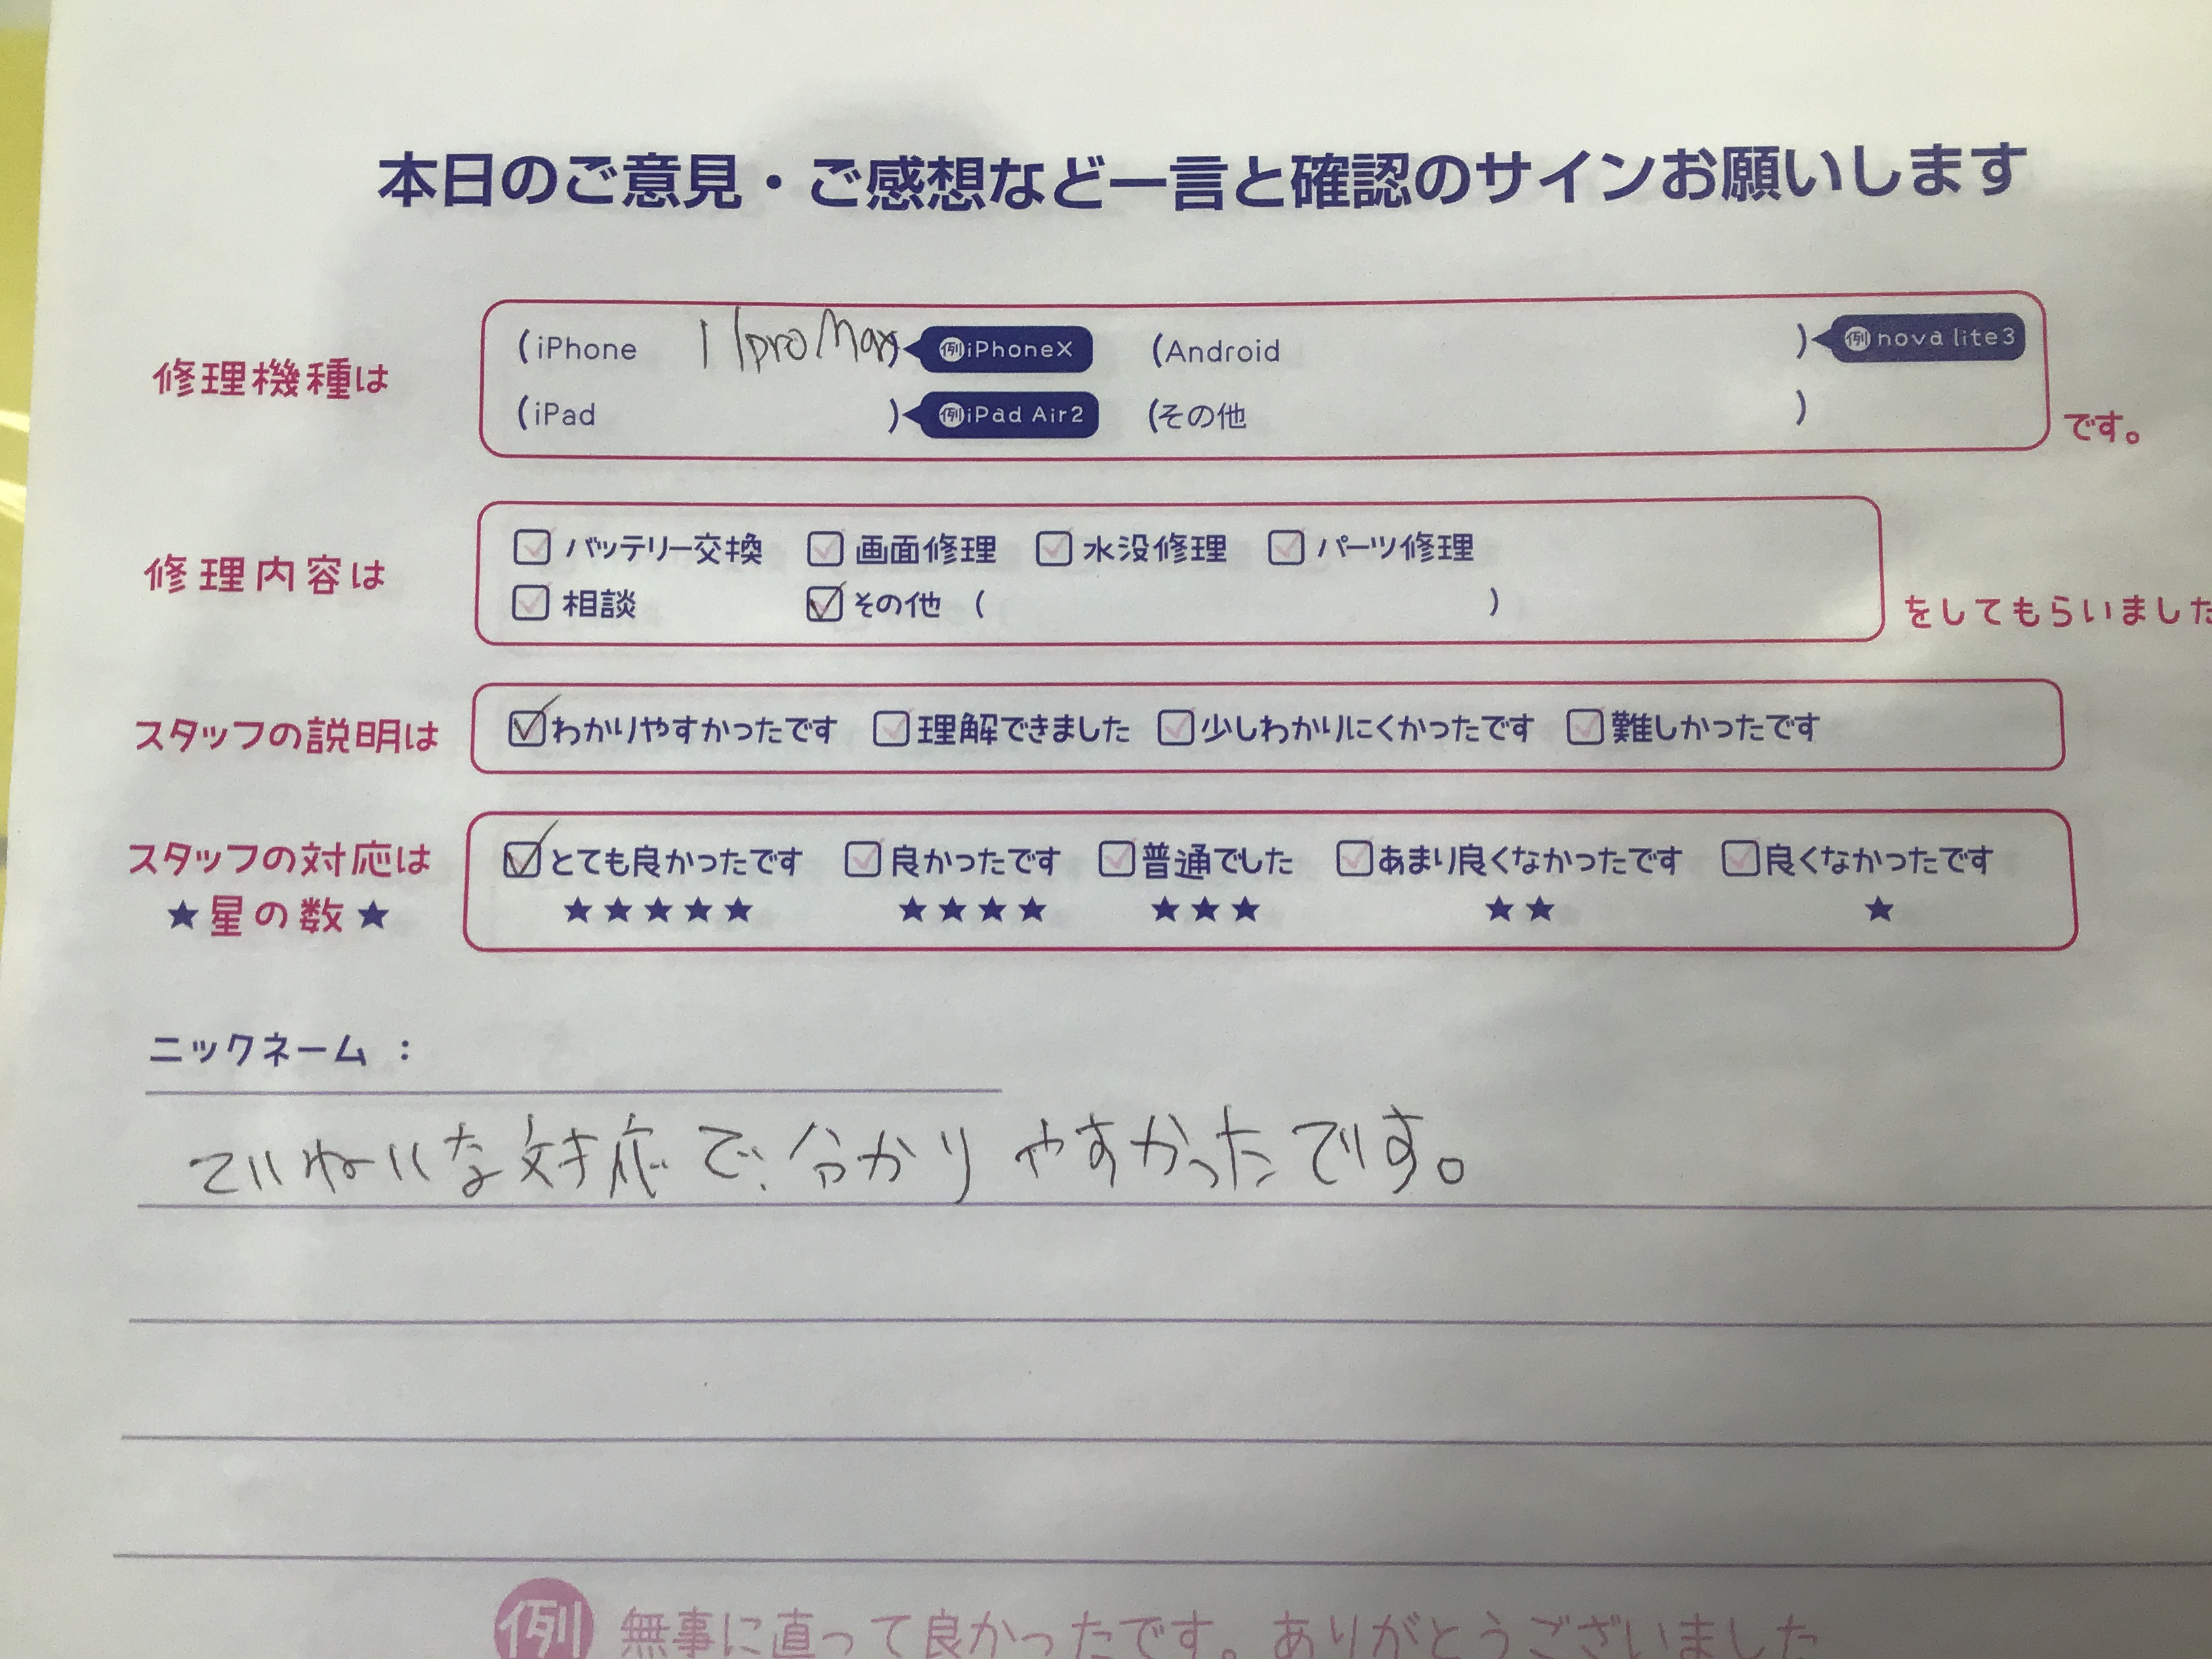 本日のご意見・ご感想など一言と確認のサインお願いします
修理機種は
(iPhone 11pro Max) 例iPhoneX (Android ) 例nova lite3
(iPad ) 例iPad Air2 (その他 )
です。
修理内容は
バッテリー交換 画面修理 水没修理 パーツ修理
相談 その他 ( )
をしてもらいました
スタッフの説明は
わかりやすかったです 理解できました 少しわかりにくかったです 難しかったです
スタッフの対応は
★星の数★
とても良かったです 良かったです 普通でした あまり良くなかったです 良くなかったです
★★★★★ ★★★★ ★★★ ★★ ★
ニックネーム：
ていねいな対応で、分かりやすかったです。
例 無事に直って良かったです。ありがとうございました